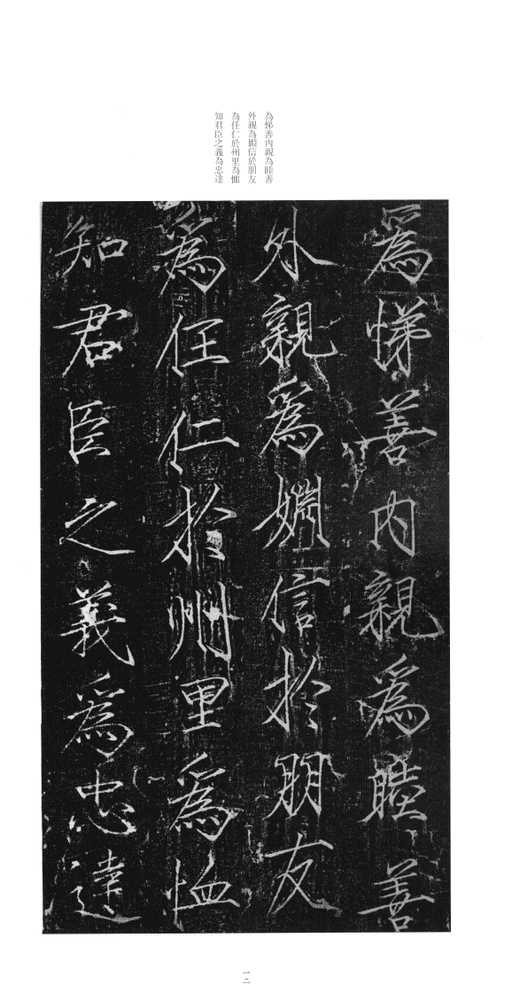 為悌善內親為睦善
外親為婣信於朋友
為任仁於州里為恤
知君臣之義為忠達
爲悌善内親爲睦善
外親爲婣信於朋友
爲任仁於州里爲恤
知君臣之義爲忠達
一三